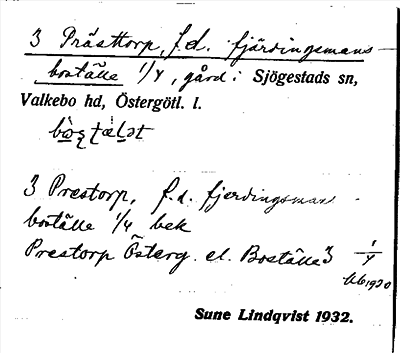 3 Prästtorp, f.d. fjärdingsmans-
boställe 1/4, gård i Sjögestads sn,
Valkebo hd, Östergötl. l.
3 Prestorp, f.d. fjerdingsmans
boställe 1/4 bek
Prestorp Österg. el. Boställe 3 1/4
1930
Sune Lindqvist 1932.